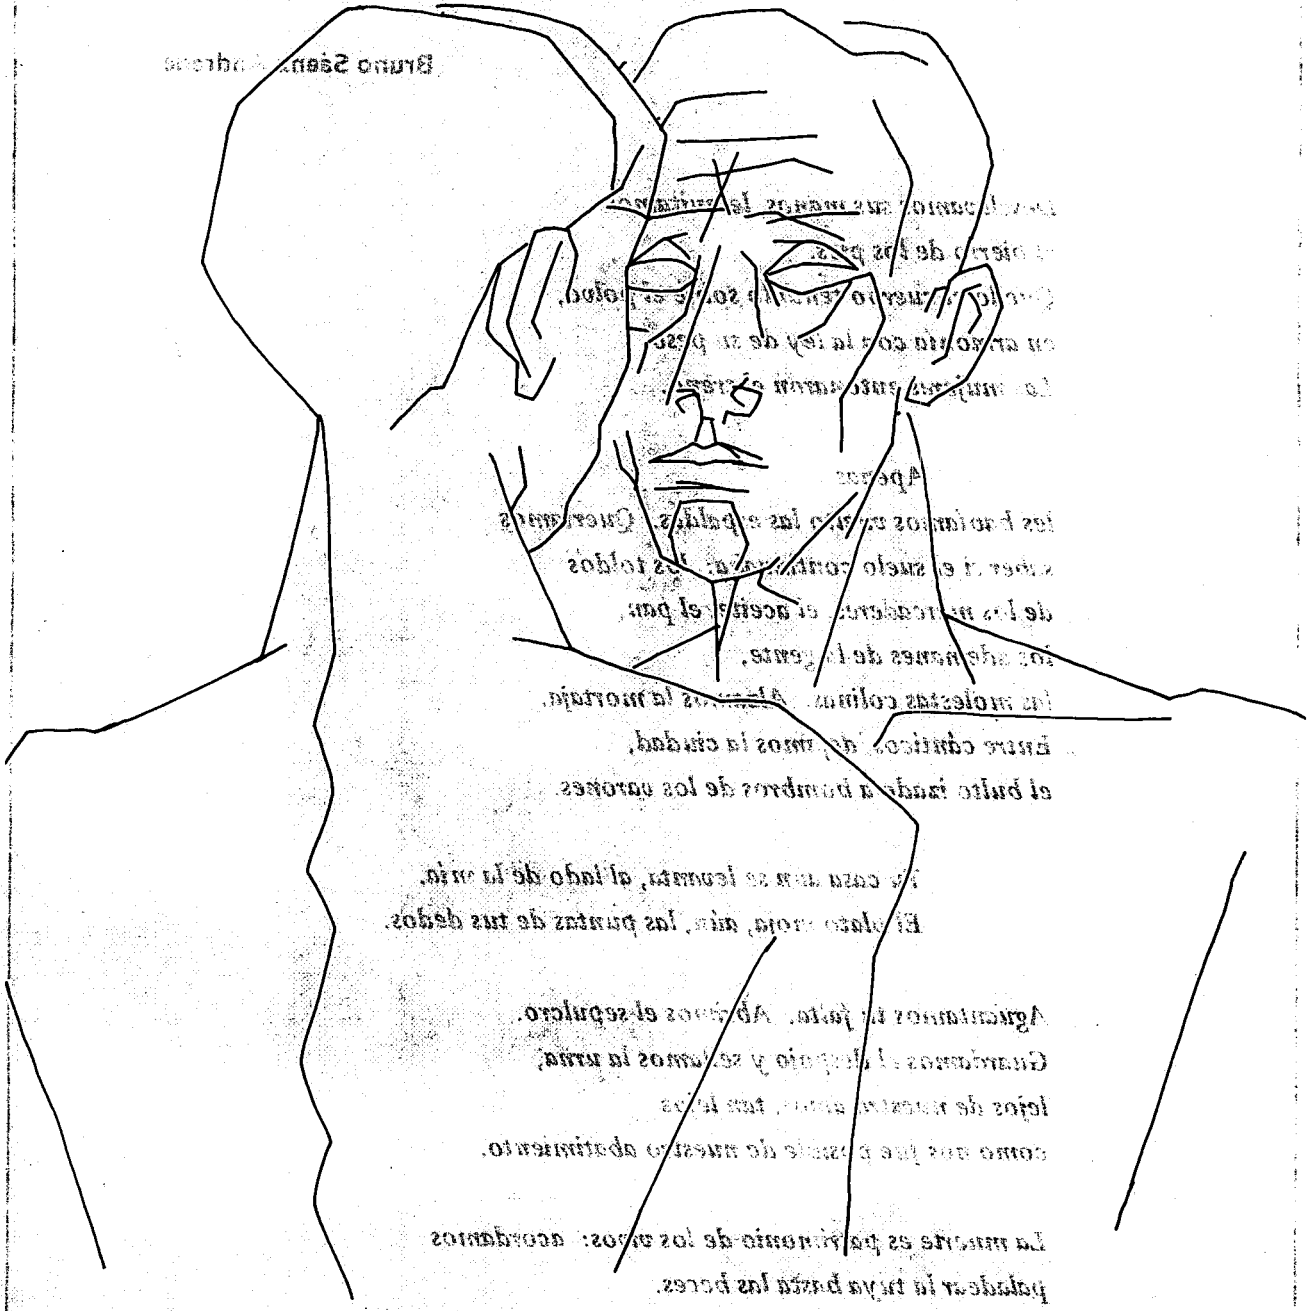 Bruno Sáenz Andrade
sus manos, levitamos
de los pies.
cuerpo tendido sobre el polvo,
en armonía con la ley de su peso.
mujeres entonaron el treno.
Apenas
les hacíamos vuelto las espaldas. Queríamos
saber si el suelo continuaba: los toldos
de los mercaderes, el aceite, el pan,
los ademanes de la gente,
las molestas colinas. Alzamos la mortaja.
Entre cánticos, dejamos la ciudad,
el bulto izado a hombros de los varones.
Tu casa aun se levanta, al lado de la mía.
El plato moja, aún, las puntas de tus dedos.
Aguantamos tu falta. Abrimos el sepulcro.
Guardamos el despojo y sellamos la urna,
lejos de nuestro amor, tan lejos
como nos fue posible de nuestro abatimiento.
La muerte es patrimonio de los vivos: acordamos
paladear la tuya hasta las heces.